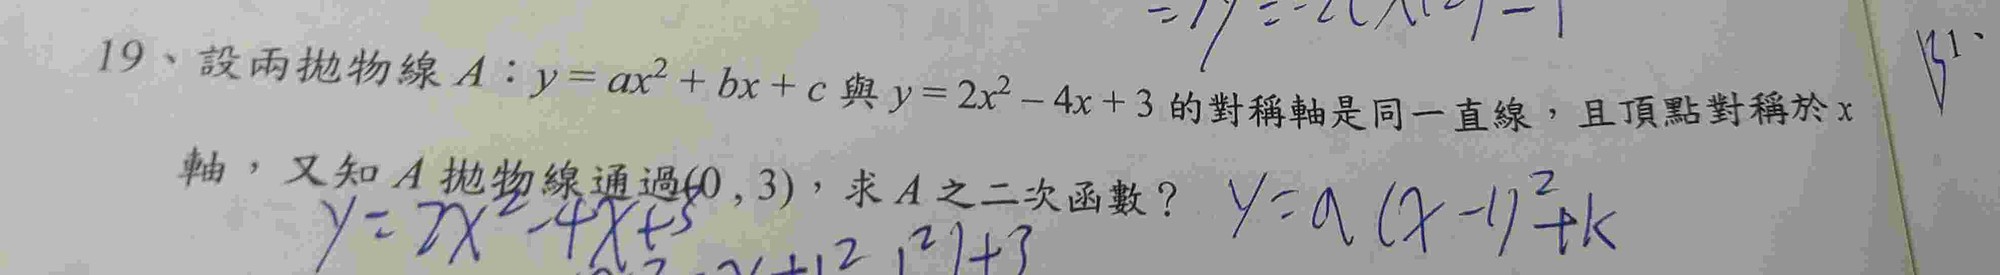 19、設兩拋物線 A：y = ax² + bx + c 與 y = 2x² – 4x + 3 的對稱軸是同一直線，且頂點對稱於 x
軸，又知 A 拋物線通過(0 , 3)，求 A 之二次函數？
y = a (x -1)² + k
y = 2x² -4x+3